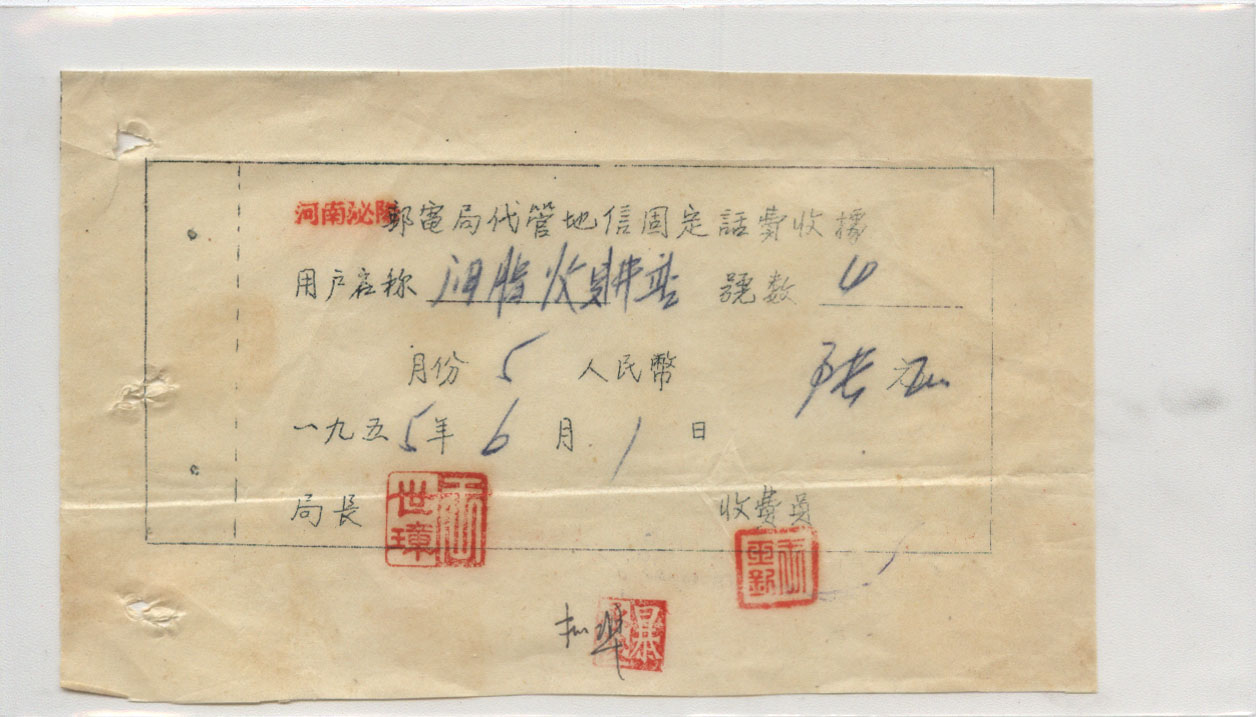 河南泌陽郵電局代管地信固定話費收據
用户名称 油脂收購站 號數 4
月份 5 人民幣 元
一九五5年6月1日
局長 世璋
收費員